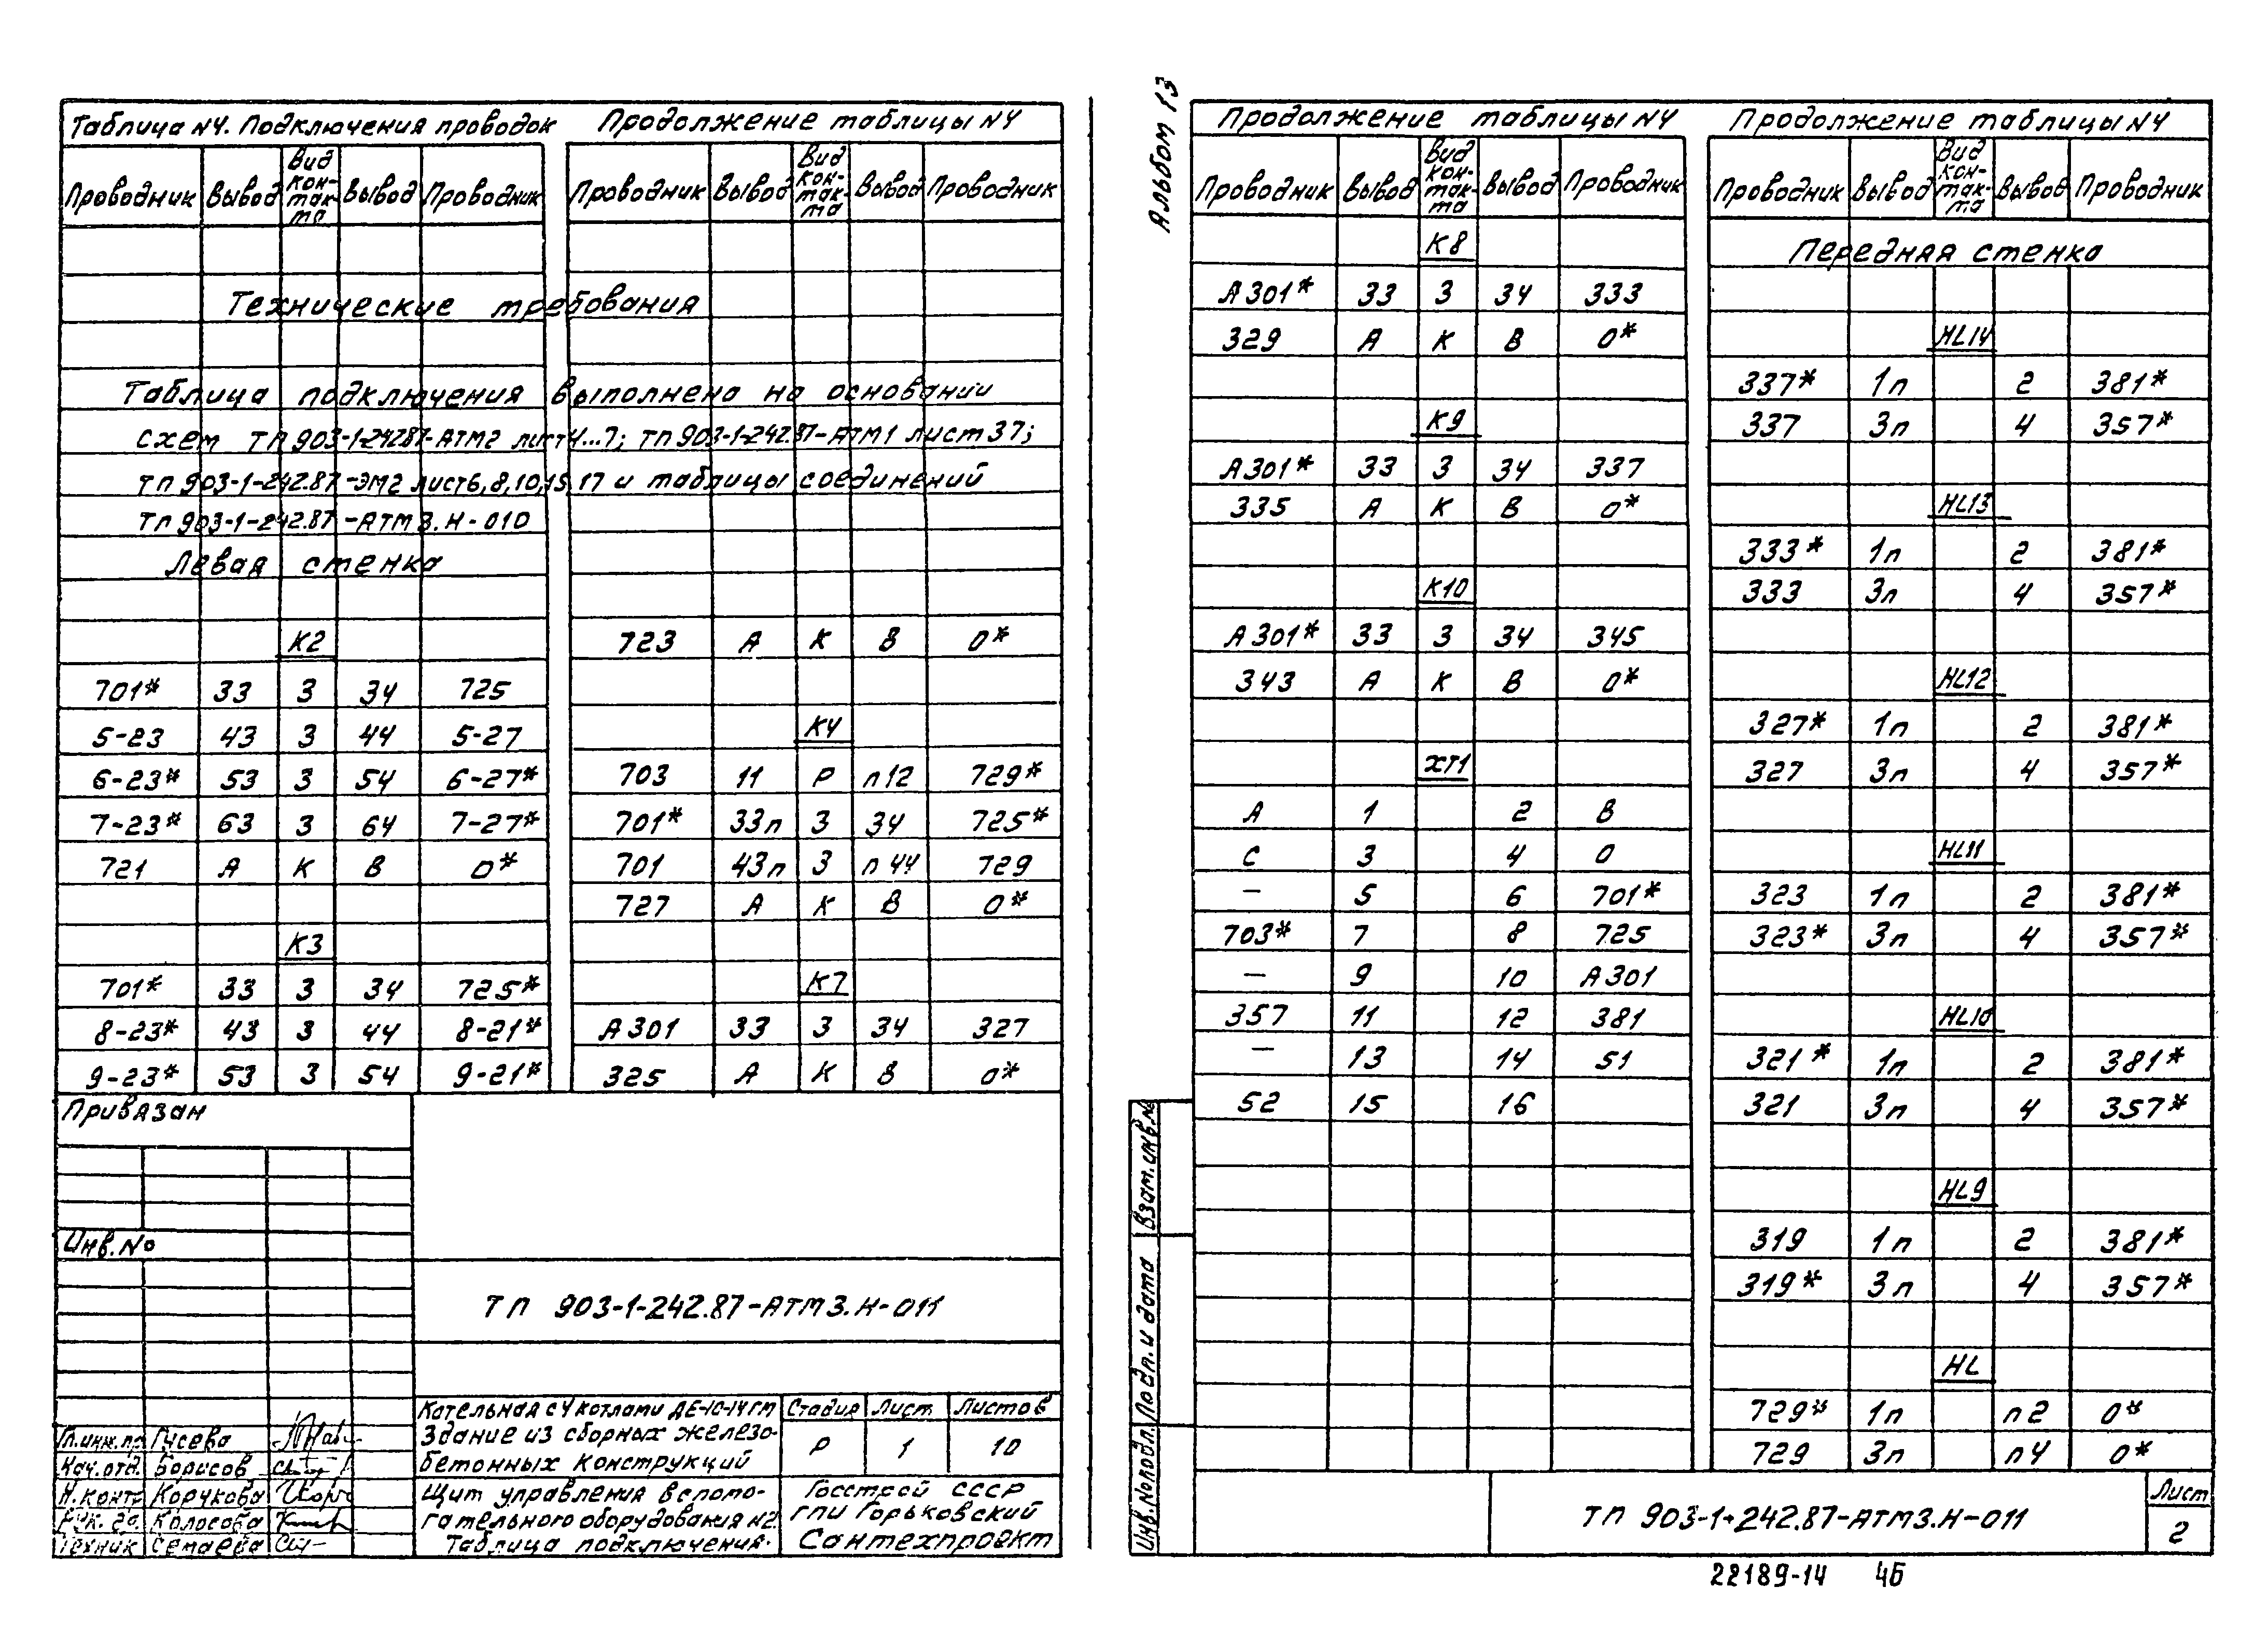 Таблица №4. Подключения проводок
Проводник Вывод Вид контакта Вывод Проводник
Технические требования
Таблица подключения выполнена на основании
схем ТП 903-1-242.87-АТМ2 лист4...7; ТП 903-1-242.87-АТМ1 лист 37;
ТП 903-1-242.87-ЭМ2 лист6,8,10,15,17 и таблицы соединений
ТП 903-1-242.87-АТМ3.Н-010
Левая стенка
К2
701* 33 З 34 725
5-23 43 З 44 5-27
6-23* 53 З 54 6-27*
7-23* 63 З 64 7-27*
721 А К В 0*
К3
701* 33 З 34 725*
8-23* 43 З 44 8-21*
9-23* 53 З 54 9-21*
Продолжение таблицы №4
Проводник Вывод Вид контакта Вывод Проводник
723 А К В 0*
К4
703 11 Р п12 729*
701* 33п З 34 725*
701 43п З п44 729
727 А К В 0*
К7
А301 33 З 34 327
325 А К В 0*
Привязан
Инв.№
ТП 903-1-242.87-АТМ3.Н-011
Гл.инж.пр Гусева
Нач.отд. Борисов
Н.контр Корчкова
Рук. гр. Колосова
Техник Семаева
Котельная с 4 котлами ДЕ-10-14ГМ
Здание из сборных железо-
бетонных конструкций
Стадия Лист Листов
Р 1 10
Щит управления вспомо-
гательного оборудования №2.
Таблица подключения.
Госстрой СССР
ГПИ Горьковский
Сантехпроект
Альбом 13
Продолжение таблицы №4
Проводник Вывод Вид контакта Вывод Проводник
К8
А301* 33 З 34 333
329 А К В 0*
К9
А301* 33 З 34 337
335 А К В 0*
К10
А301* 33 З 34 345
343 А К В 0*
ХТ1
А 1 2 В
С 3 4 0
— 5 6 701*
703* 7 8 725
— 9 10 А301
357 11 12 381
— 13 14 51
52 15 16
Продолжение таблицы №4
Проводник Вывод Вид контакта Вывод Проводник
Передняя стенка
HL14
337* 1п 2 381*
337 3п 4 357*
HL13
333* 1п 2 381*
333 3п 4 357*
HL12
327* 1п 2 381*
327 3п 4 357*
HL11
323 1п 2 381*
323* 3п 4 357*
HL10
321* 1п 2 381*
321 3п 4 357*
HL9
319 1п 2 381*
319* 3п 4 357*
HL
729* 1п п2 0*
729 3п п4 0*
Взам.инв.№
Подп. и дата
Инв.№подл.
ТП 903-1-242.87-АТМ3.Н-011
Лист
2
22189-14 46